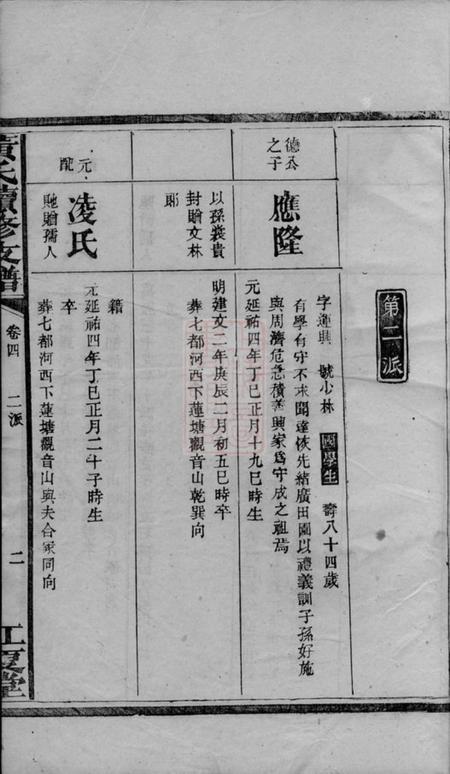 第二派
德公
之子
應隆
字蓮興 號少林 國學生 壽八十四歲
有學有守不求聞達恢先緒廣田園以禮義訓子孫好施
與周濟危急積善興家為守成之祖焉
元延祐四年丁巳正月十九巳時生
以孫裳貴
封贈文林
郎
明建文二年庚辰二月初五巳時卒
葬七都河西下蓮塘觀音山乾巽向
元
配
凌氏
馳贈孺人
籍
元延祐四年丁巳正月二十子時生
卒
葬七都河西下蓮塘觀音山與夫合冢同向
黃氏續修支譜
卷四 二派
二
江夏堂